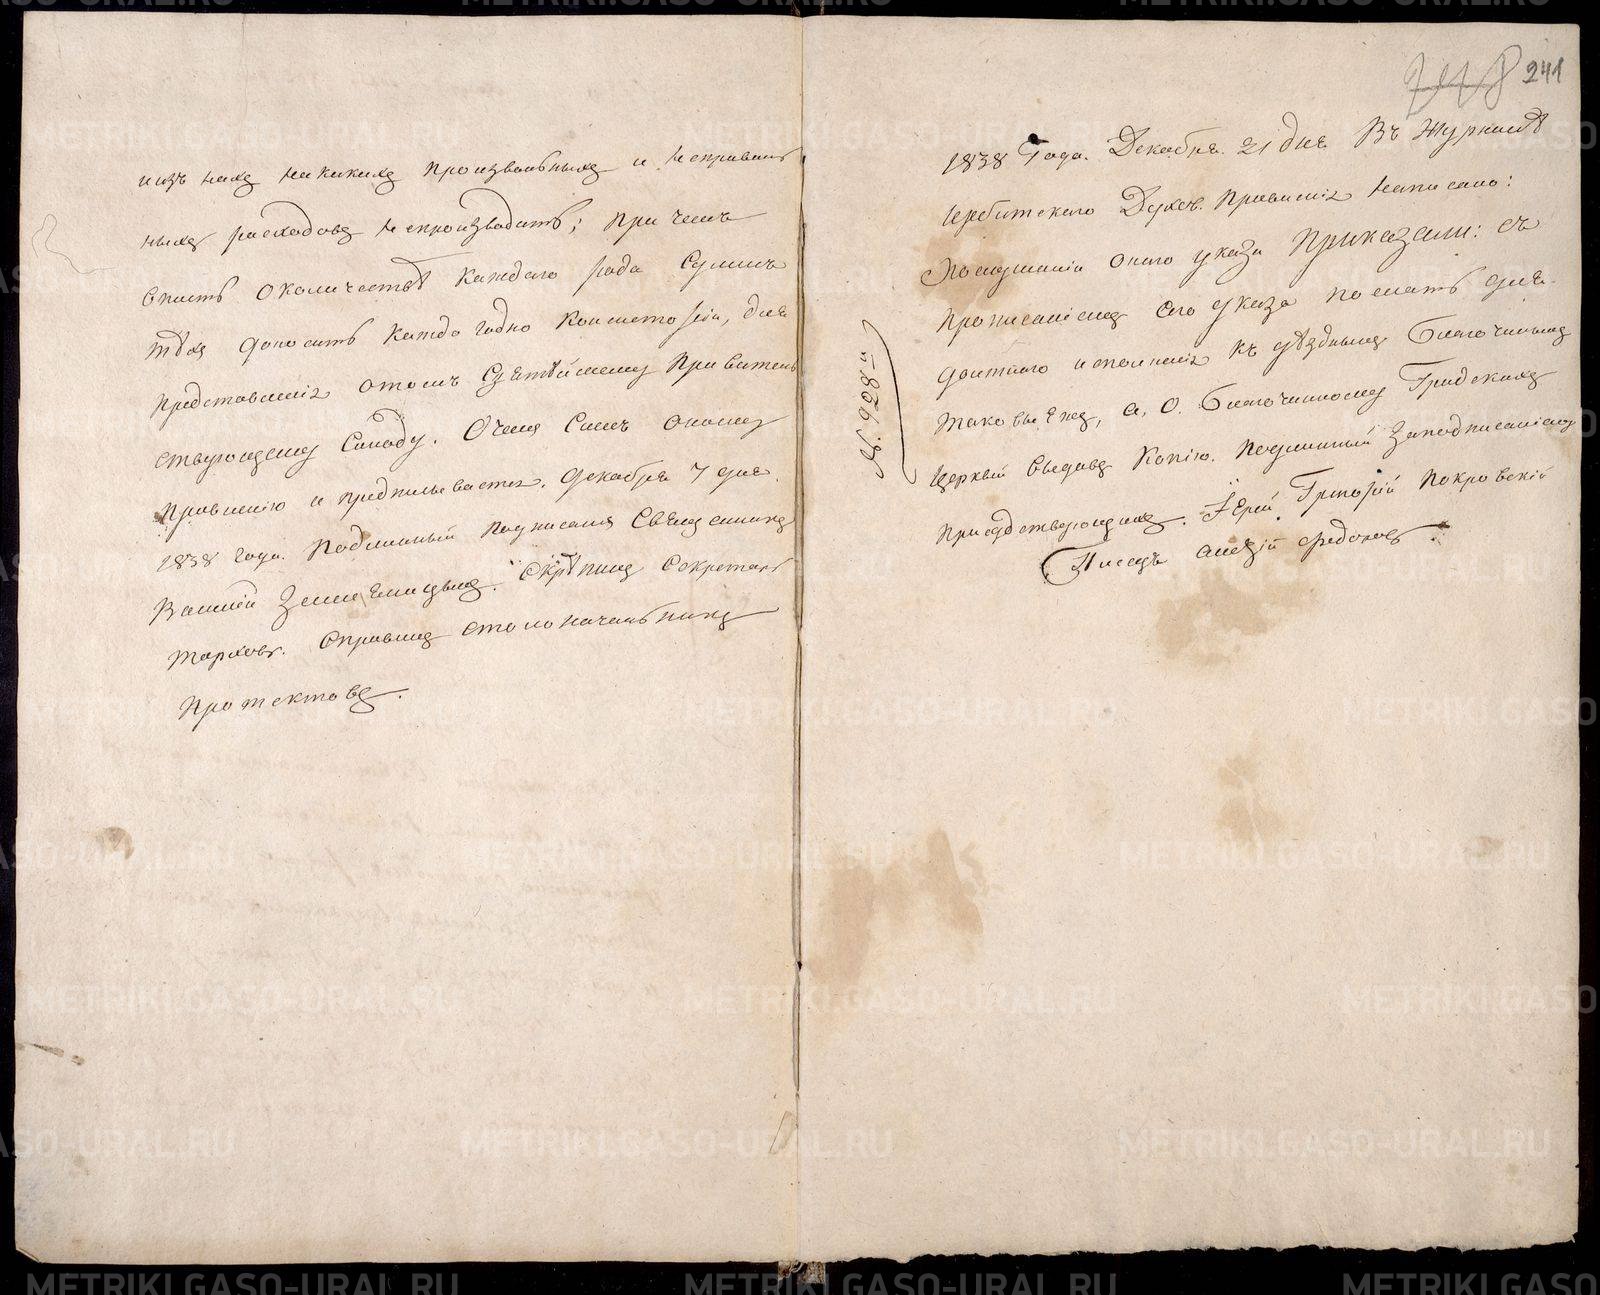 изъ нихъ никакихъ произвольныхъ и неправиль
ныхъ расходовъ непроизводить; при чемъ
о количествѣ каждаго рода суммъ
тѣхъ доносить каждогодно Консисторіи, для
представленія отомъ Святѣйшему Правитель
ствующему Синоду. Очемъ Симъ оному
правленію и предписывается. Декабря 7 дня
1838 года. Подлинный подписалъ Священникъ
Василій Земляницынъ. Скрѣпилъ Секретарь
Справилъ столоначальникъ
Протектовъ.
241
1838 Года. Декабря 21 дня Въ Журналѣ
Ирбитскаго Духов. Правленія написано:
По слушаніи онаго указа Приказали: съ
прописаніемъ сего указа послать для
должнаго исполненія къ уѣзднымъ Благочиннымъ
таковыежъ, а, О. Благочинному Градскихъ
Церквей Копію. Подлинный Заподписаніемъ
Присудствующихъ. Іерей Григорій Покровскій
Писецъ Алексій Федоровъ.
№ 926-й